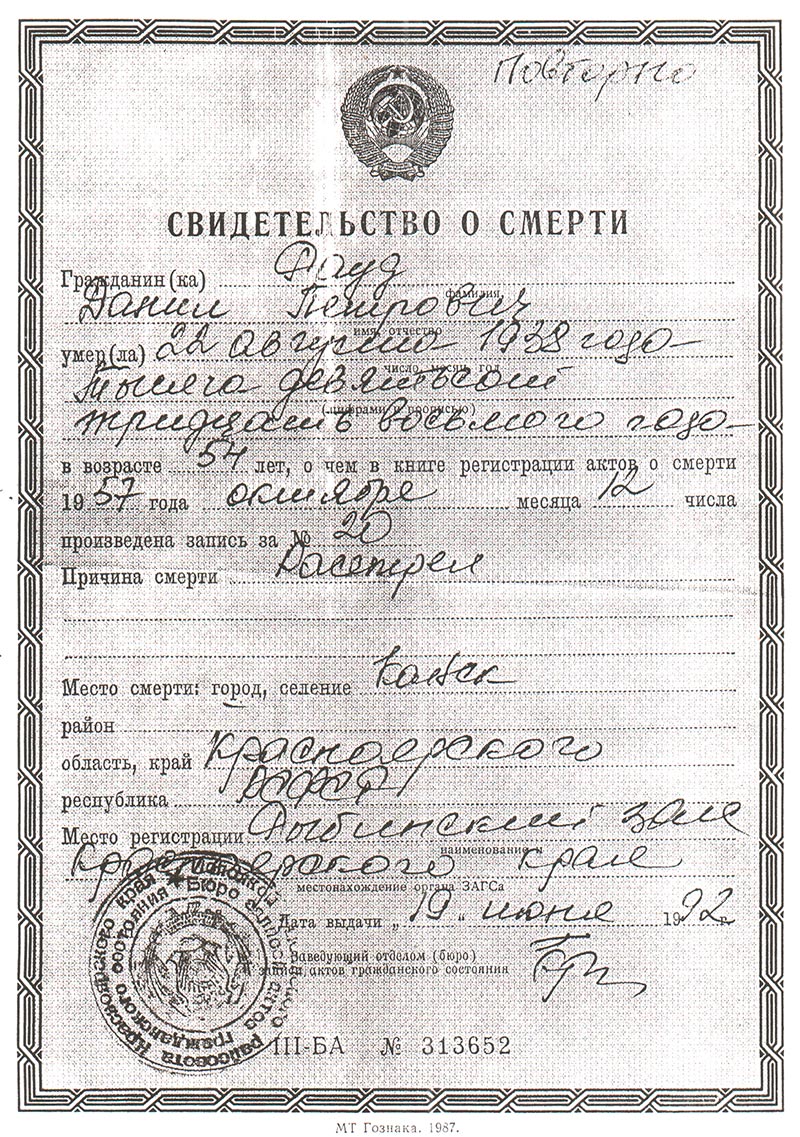 Повторно
СВИДЕТЕЛЬСТВО О СМЕРТИ
Гражданин(ка) Рауд
фамилия,
Данил Петрович
имя, отчество
умер(ла) 22 августа 1938 года
число, месяц, год
тысяча девятьсот
(цифрами и прописью)
тридцать восьмого года
в возрасте 54 лет, о чем в книге регистрации актов о смерти
1957 года октября месяца 12 числа
произведена запись за № 20
Причина смерти Расстрел
Место смерти: город, селение Канск
район
область, край Красноярского
республика РСФСР
Место регистрации Рыбинский загс
наименование и
Красноярского края
местонахождение органа ЗАГСа
Дата выдачи „19" июня 1992 г.
Заведующий отделом (бюро)
записи актов гражданского состояния
III-БА № 313652
МТ Гознака. 1987.